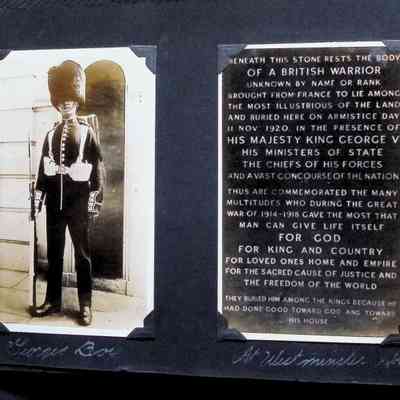 BENEATH THIS STONE RESTS THE BODY
OF A BRITISH WARRIOR
UNKNOWN BY NAME OR RANK
BROUGHT FROM FRANCE TO LIE AMONG
THE MOST ILLUSTRIOUS OF THE LAND
AND BURIED HERE ON ARMISTICE DAY
11 NOV: 1920, IN THE PRESENCE OF
HIS MAJESTY KING GEORGE V
HIS MINISTERS OF STATE
THE CHIEFS OF HIS FORCES
AND A VAST CONCOURSE OF THE NATION
THUS ARE COMMEMORATED THE MANY
MULTITUDES WHO DURING THE GREAT
WAR OF 1914-1918 GAVE THE MOST THAT
MAN CAN GIVE LIFE ITSELF
FOR GOD
FOR KING AND COUNTRY
FOR LOVED ONES HOME AND EMPIRE
FOR THE SACRED CAUSE OF JUSTICE AND
THE FREEDOM OF THE WORLD
THEY BURIED HIM AMONG THE KINGS BECAUSE HE
HAD DONE GOOD TOWARD GOD AND TOWARD
HIS HOUSE
At Westminster